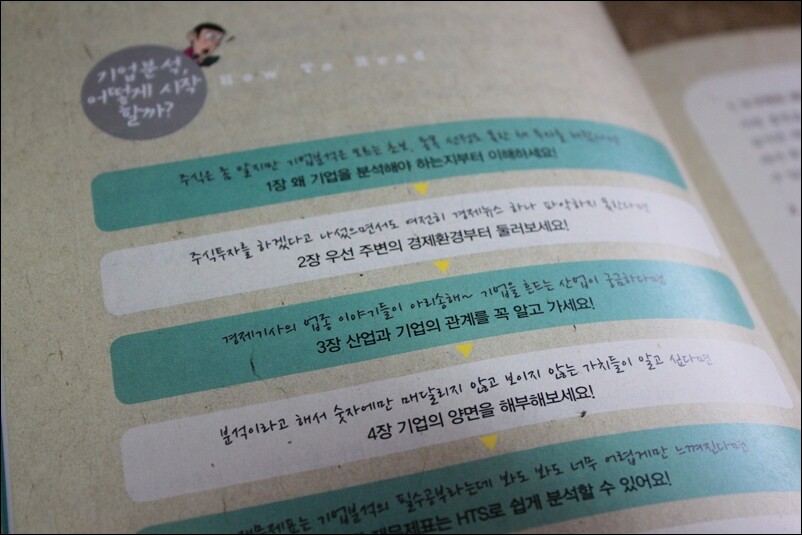 기업분석,
어떻게 시작
할까?
How To Read
주식은 좀 알지만 기업분석은 모르는 초보, 종목 선정도 못한 채 투자를
1장 왜 기업을 분석해야 하는지부터 이해하세요!
주식투자를 하겠다고 나섰으면서도 여전히 경제뉴스 하나 파악하지 못한다면
2장 우선 주변의 경제환경부터 둘러보세요!
경제기사의 업종 이야기들이 아리송해~ 기업을 흔드는 산업이 궁금하다면
3장 산업과 기업의 관계를 꼭 알고 가세요!
분석이라고 해서 숫자에만 매달리지 않고 보이지 않는 가치들이 알고 싶다면
4장 기업의 양면을 해부해보세요!
재무제표는 기업분석의 필수공부라는데 봐도 봐도 너무 어렵게만 느껴진다면
재무제표는 HTS로 쉽게 분석할 수 있어요!